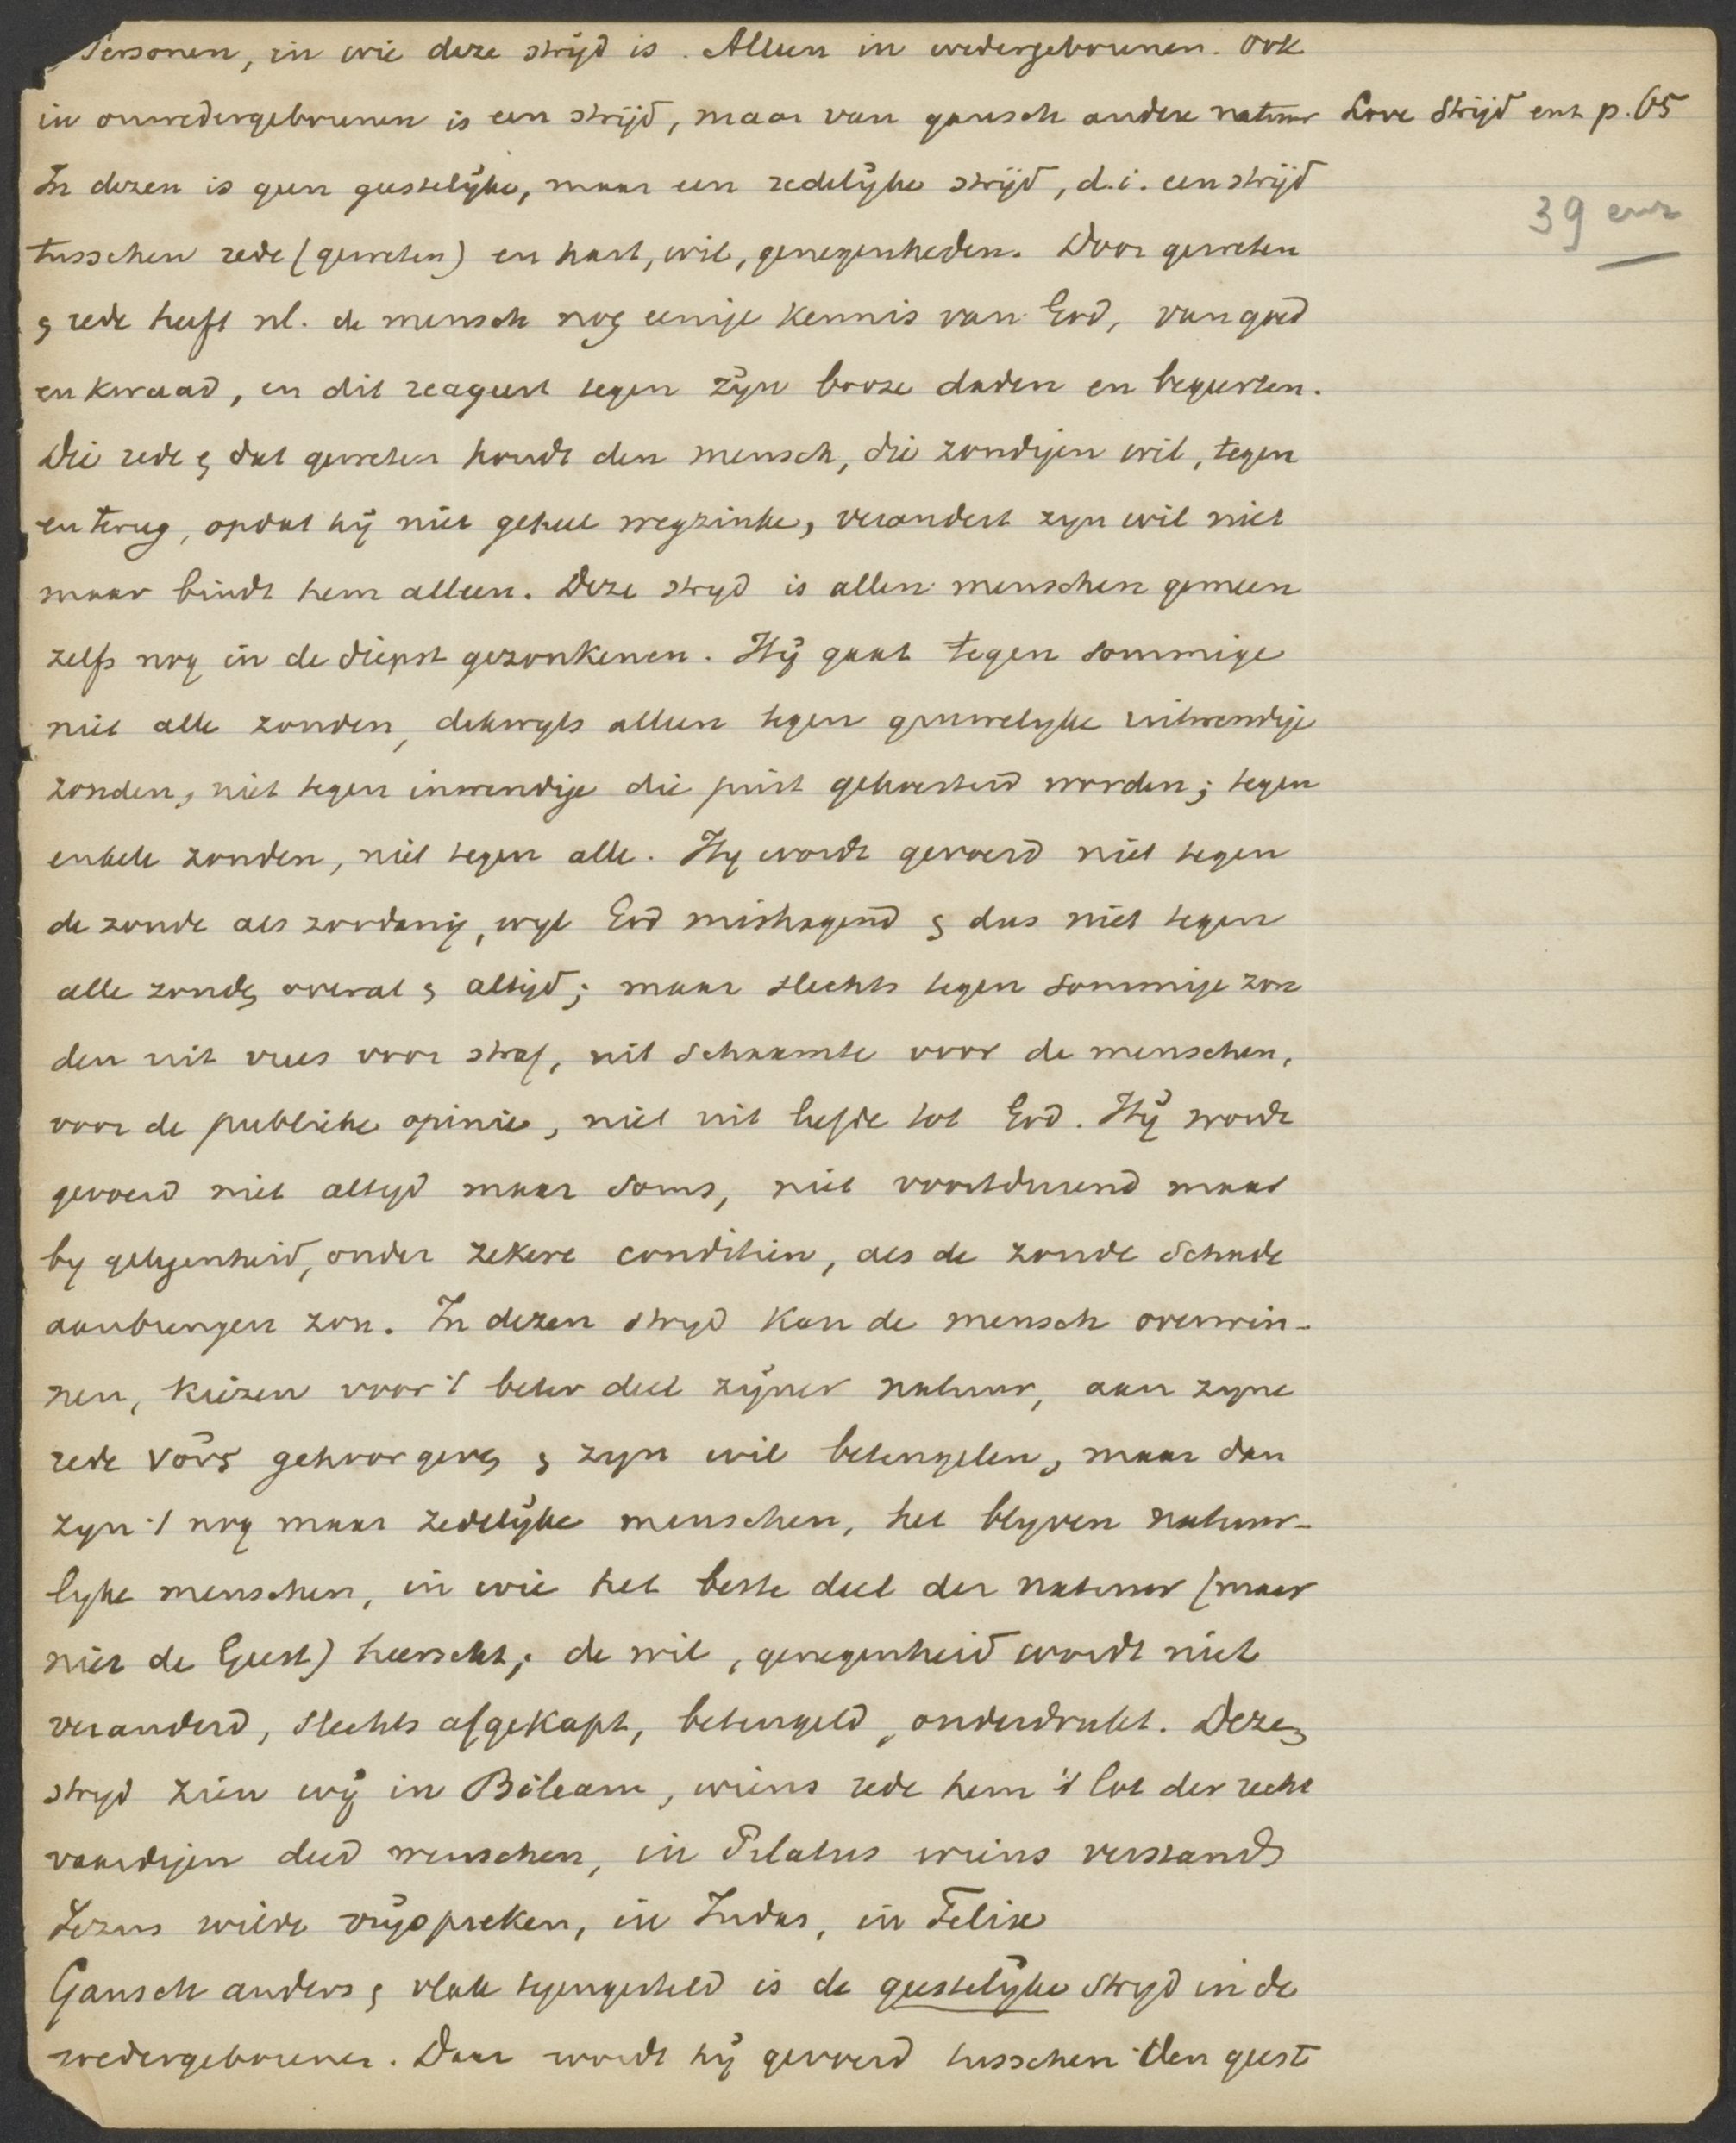 Personen, in wie deze strijd is. Alleen in wedergeborenen. Ook
in onwedergeborenen is een strijd, maar van gansch andere natuur Love Strijd enz p. 65
In dezen is geen geestelijke, maar een redelijke strijd, d.i. een strijd
39 enz
tusschen rede (geweten) en hart, wil, genegenheden. Door geweten
& rede heeft nl. de mensch nog eenige kennis van God, van goed
en kwaad, en dit reageert tegen zijn booze daden en begeerten.
Die rede & dat geweten houdt den mensch, die zondigen wil, tegen
en terug, opdat hij niet geheel wegzinke, verandert zyn wil niet
maar bindt hem alleen. Deze stryd is allen menschen gemeen
zelfs nog in de diepst gezonkenen. Hij gaat tegen sommige
niet alle zonden, dikwyls alleen tegen gruwelyke uitwendige
zonden, niet tegen inwendige die juist gekoesterd worden; tegen
enkele zonden, niet tegen alle. Hy wordt gevoerd niet tegen
de zonde als zoodanig, wyl God mishagend & dus niet tegen
alle zonde, overal & altijd; maar slechts tegen sommige zon
den uit vrees voor straf, uit schaamte voor de menschen,
voor de publieke opinie, niet uit liefde tot God. Hij wordt
gevoerd niet altyd maar soms, niet voortdurend maar
by gelegenheid, onder zekere conditiën, als de zonde schade
aanbrengen zou. In dezen stryd kan de mensch overwin-
nen, kiezen voor 't beter deel zijner natuur, aan zyne
rede gehoor geven & zyn wil beteugelen, maar dan
zyn 't nog maar zedelijke menschen, het blyven natuur-
lyke menschen, in wie het beste deel der natuur (maar
niet de Geest) heerscht; de wil, genegenheid wordt niet
veranderd, slechts afgekapt, beteugeld, onderdrukt. Dezen
stryd zien wij in Bileam, wiens rede hem 't lot der recht
vaardigen deed wenschen, in Pilatus wiens verstand
Jezus wilde vrijspreken, in Judas, in Felix
Gansch anders & vlak tegengesteld is de geestelijke stryd in de
wedergeborenen. Daar wordt hij gevoerd tusschen den geest